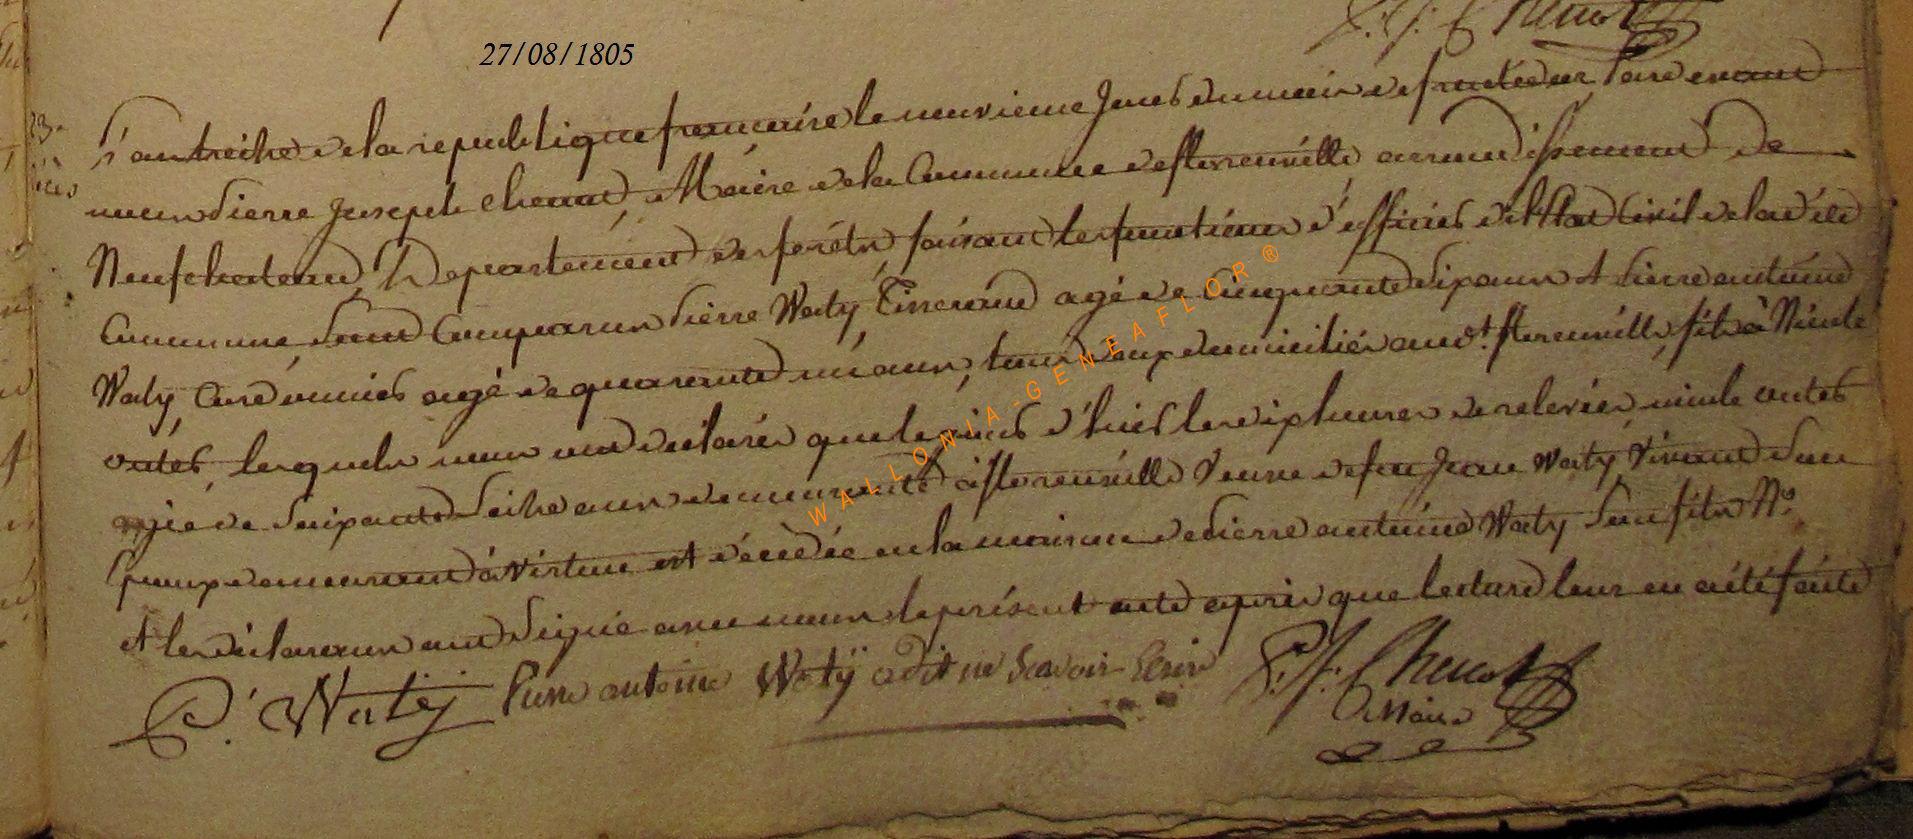 P: J: Chenot
27/08/1805
23e
décès
L'an treize de la republique francaise le neuvieme Jour du mois de fructidor pardevant
nous Pierre Joseph Chenot Maire de la Commune de Sterneuille arrondissement de
Neufchateau Departement des forêts faisant les fonctions d'officier de l'Etat Civil de la dite
Commune sont Comparus Pierre Waty Tisserand agé de Cinquante six ans et Pierre antoine
Waty, Cordonnier agé de quarante un ans, tous deux domiciliés aud.t Sterneuille, fils à Nicole
lesquels nous ont déclarés que le jour d'hier les dix heures de relevée, nicole
agée de soixante seize ans demeurante à Sterneuille Veuve de feu Jean Waty Vivant son
Epoux demeurant à Virtun est décédée en la maison de Pierre antoine Waty son fils N.o
et les déclarans ont signé avec nous le présent acte après que lecture leur en a été faite
P. Watÿ Pierre antoine Watÿ a dit ne Scavoir Ecrir P. J. Chenot
Maire
WALLONIA-GENEAFLOR ®